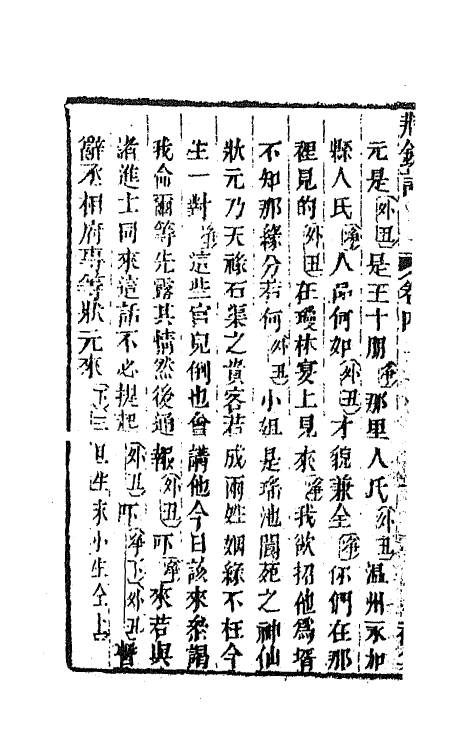 荆釵記
元是外丑是王十朋淨那里人氏外丑温州永加
縣人氏淨人品何如外丑才貌兼全淨你們在那
裡見的外丑在瓊林宴上見來淨我欲招他爲壻
不知那緣分若何外丑小姐是瑤池閬苑之神仙
狀元乃天祿石渠之貴客若成兩姓姻緣不枉今
生一對淨這些官兒倒也會講他今日該來參謁
我侖爾等先露其情然後通報外丑吓淨來若與
諸進士同來這話不必提起外丑吓淨下外丑暫
辭丞相府專等狀元來下生末小生仝上